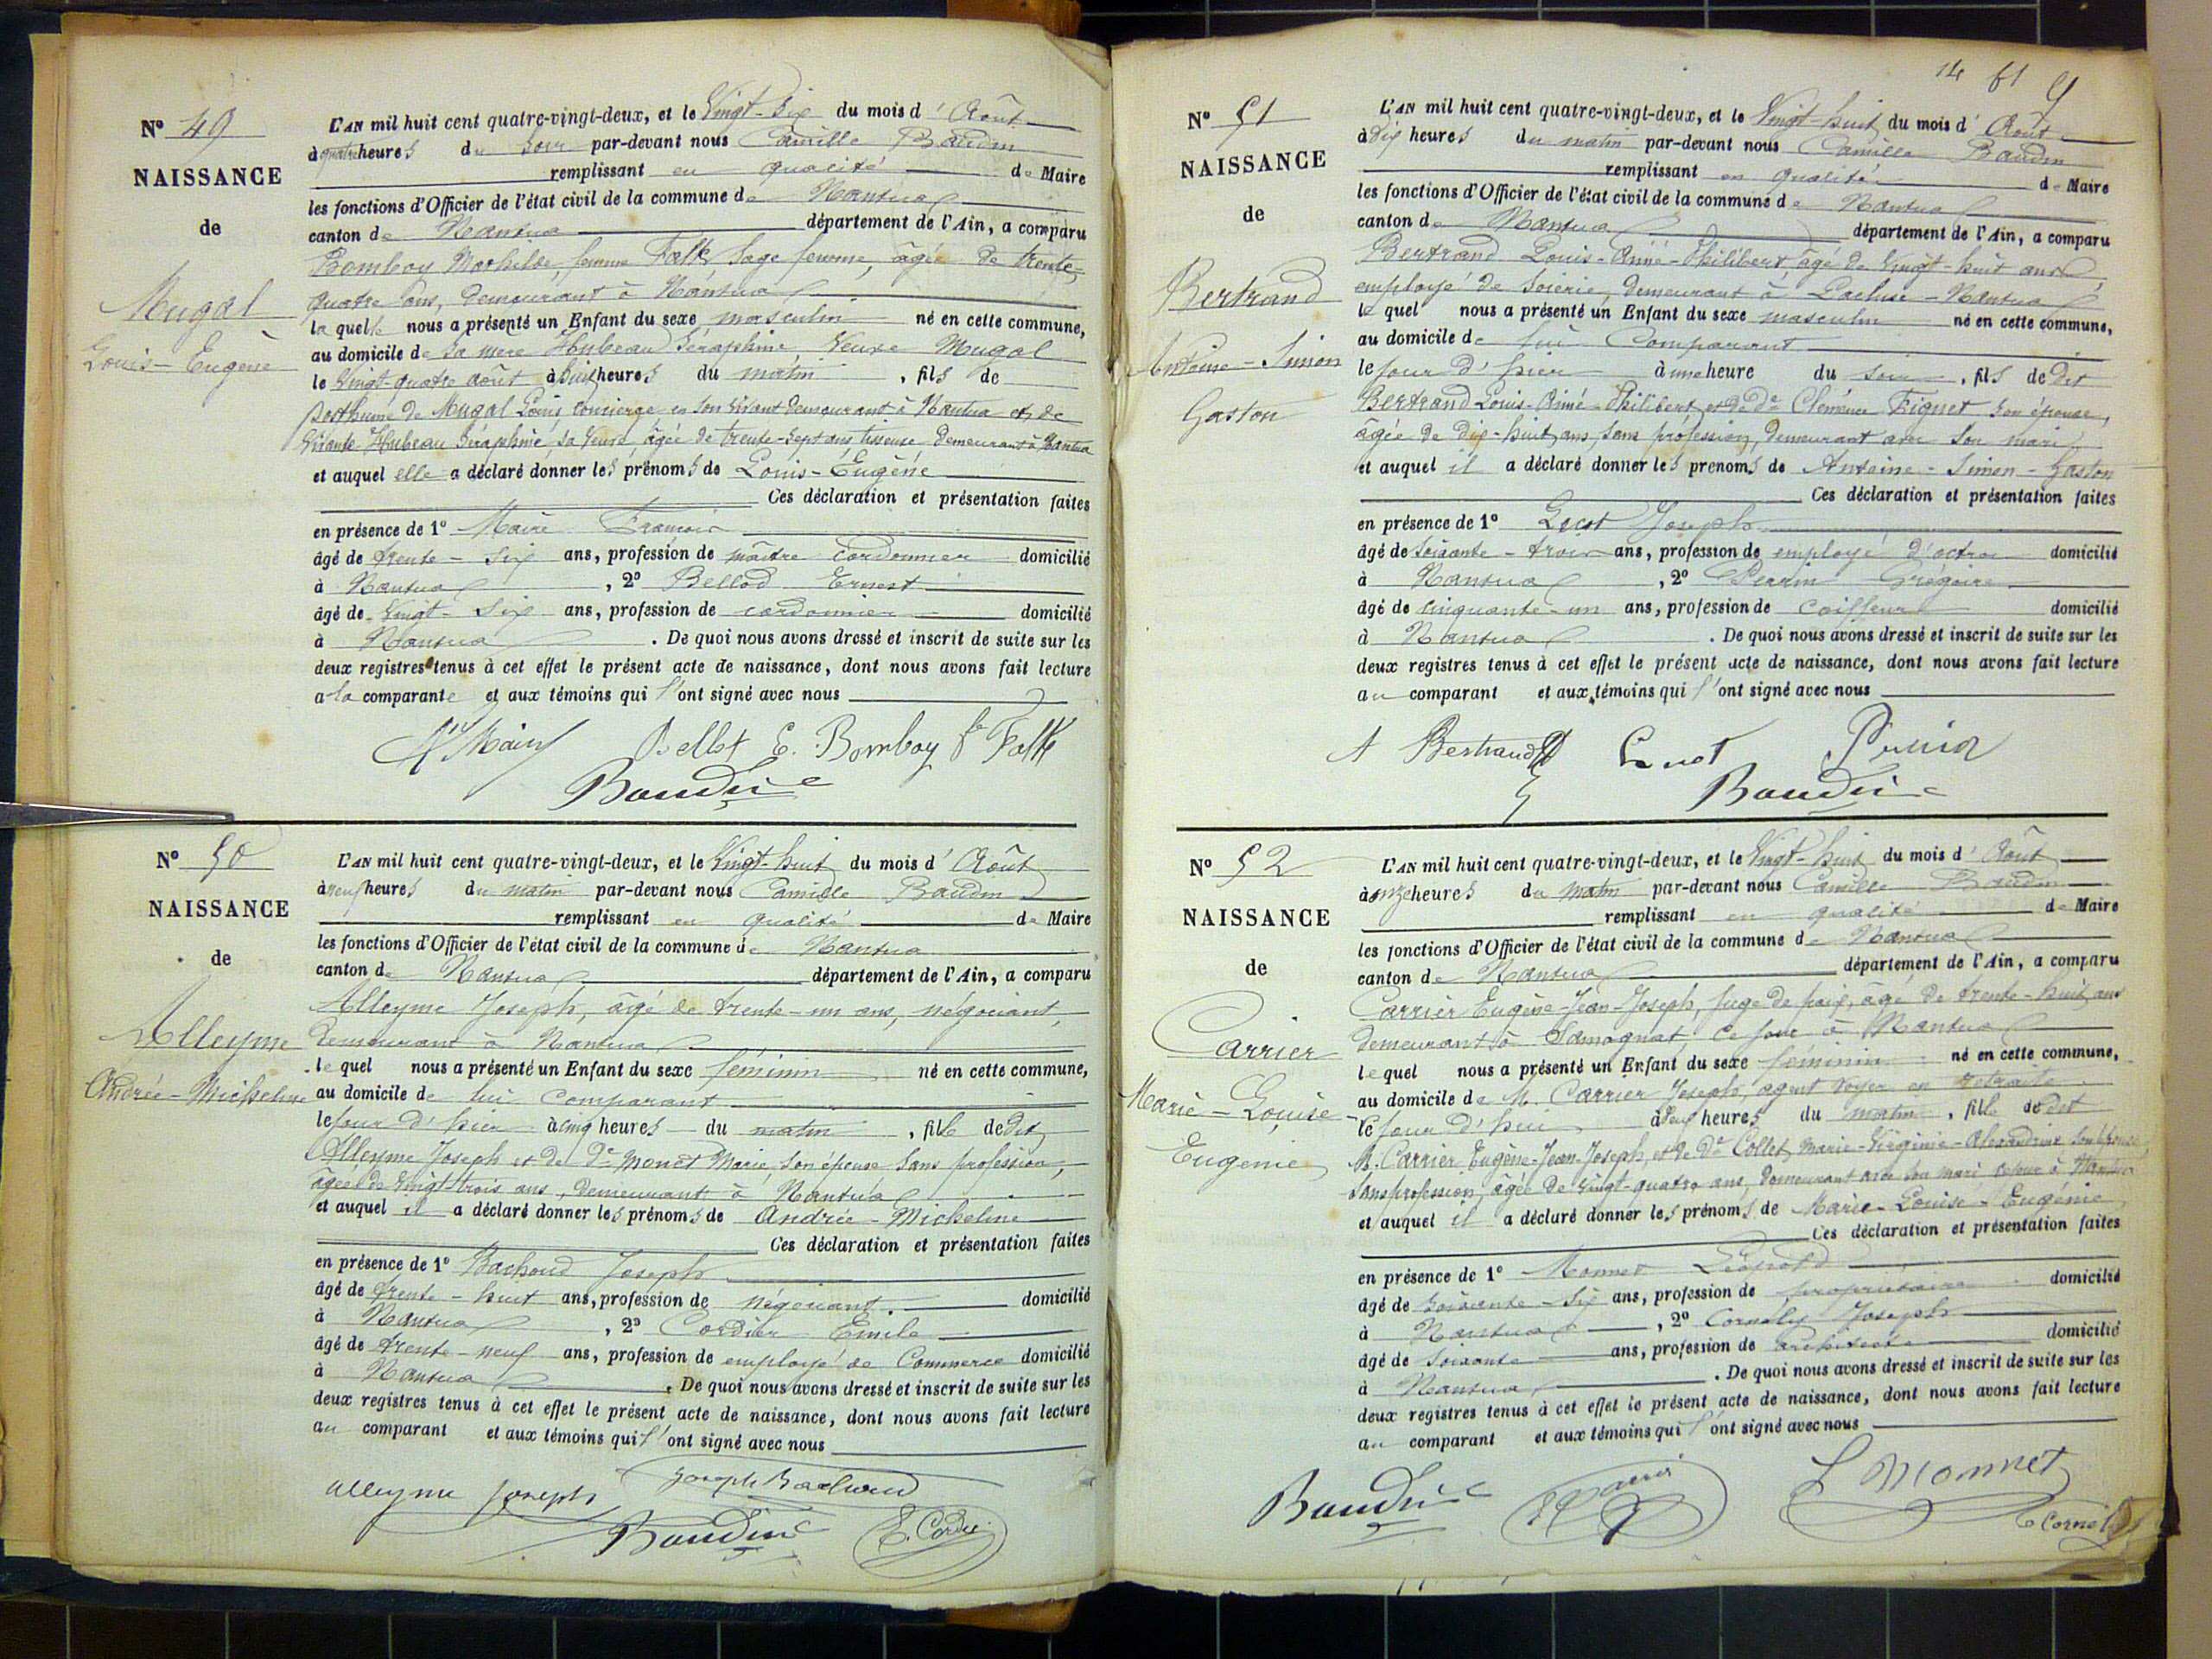 Nº 49
NAISSANCE
de
Mugal
Louis-Eugène
L'AN mil huit cent quatre-vingt-deux, et le Vingt-six du mois d'Août
à quatre heures du soir par-devant nous Camille Baudin
remplissant en qualité de Maire
les fonctions d'Officier de l'état civil de la commune de Nantua
canton de Nantua département de l'Ain, a comparu
Bomboy Mathilde, femme Falk, sage femme, âgée de trente-
quatre ans, demeurant à Nantua
laquelle nous a présenté un Enfant du sexe masculin né en cette commune,
au domicile de sa mère Hubeau Séraphine, Veuve Mugal
le Vingt-quatre août à huit heures du matin, fils de
posthume de Mugal Louis concierge en son vivant demeurant à Nantua et de
vivante Hubeau Séraphine sa veuve, âgée de trente-sept ans tisseuse demeurant à Nantua
et auquel elle a déclaré donner les prénoms de Louis-Eugène
Ces déclaration et présentation faites
en présence de 1º Maire François
âgé de trente-six ans, profession de maître cordonnier domicilié
à Nantua, 2º Bellod Ernest
âgé de Vingt-six ans, profession de cordonnier domicilié
à Nantua. De quoi nous avons dressé et inscrit de suite sur les
deux registres tenus à cet effet le présent acte de naissance, dont nous avons fait lecture
a la comparante et aux témoins qui l'ont signé avec nous
Bellot E. Bomboy fe Falk
Baudin
Nº 50
NAISSANCE
de
Alleyme
Andrée-Micheline
L'AN mil huit cent quatre-vingt-deux, et le Vingt-huit du mois d'Août
à neuf heures du matin par-devant nous Camille Baudin
remplissant en qualité de Maire
les fonctions d'Officier de l'état civil de la commune de Nantua
canton de Nantua département de l'Ain, a comparu
Alleyme Joseph, âgé de trente-un ans, négociant,
demeurant à Nantua
lequel nous a présenté un Enfant du sexe féminin né en cette commune,
au domicile de lui comparant
le jour d'hier à cinq heures du matin, fille dedit
Alleyme Joseph et de De Monet Marie, son épouse sans profession,
âgée de Vingt trois ans, demeurant à Nantua
et auquel il a déclaré donner les prénoms de Andrée-Micheline
Ces déclaration et présentation faites
en présence de 1º Bachoud Joseph
âgé de trente-huit ans, profession de négociant. domicilié
à Nantua, 2º Cordier Emile
âgé de trente-neuf ans, profession de employé de Commerce domicilié
à Nantua. De quoi nous avons dressé et inscrit de suite sur les
deux registres tenus à cet effet le présent acte de naissance, dont nous avons fait lecture
au comparant et aux témoins qui l'ont signé avec nous
alleyme joseph Joseph Bachoud
Baudin E. Cordier
14 61
Nº 51
NAISSANCE
de
Bertrand
Antoine-Simon
Gaston
L'AN mil huit cent quatre-vingt-deux, et le Vingt-huit du mois d'Août
à dix heures du matin par-devant nous Camille Baudin
remplissant en qualité de Maire
les fonctions d'Officier de l'état civil de la commune de Nantua
canton de Nantua département de l'Ain, a comparu
Bertrand Louis-Aimé-Philibert, âgé de Vingt-huit ans,
employé de soierie, demeurant à Lacluse-Nantua
lequel nous a présenté un Enfant du sexe masculin né en cette commune,
au domicile de lui Comparant
le jour d'hier à une heure du soir, fils de dit
Bertrand Louis-Aimé-Philibert, et de De Clémence Figuet son épouse,
âgée de dix-huit ans, sans profession, demeurant avec son mari
et auquel il a déclaré donner les prenoms de Antoine-Simon-Gaston
Ces déclaration et présentation faites
en présence de 1º Joseph
âgé de soixante-trois ans, profession de employé d'octroi domicilié
à Nantua, 2º Perrin Grégoire
âgé de cinquante-un ans, profession de coiffeur domicilié
à Nantua. De quoi nous avons dressé et inscrit de suite sur les
deux registres tenus à cet effet le présent acte de naissance, dont nous avons fait lecture
au comparant et aux témoins qui l'ont signé avec nous
A Bertrand
Baudin
Nº 52
NAISSANCE
de
Carrier
Marie-Louise-
Eugénie
L'AN mil huit cent quatre-vingt-deux, et le Vingt-huit du mois d'Août
à onze heures du matin par-devant nous Camille Baudin
remplissant en qualité de Maire
les fonctions d'Officier de l'état civil de la commune de Nantua
canton de Nantua département de l'Ain, a comparu
Carrier Eugène-Jean-Joseph, juge de paix, âgé de trente-huit ans
demeurant à Samognat, ce jour à Nantua
lequel nous a présenté un Enfant du sexe féminin né en cette commune,
au domicile de M. Carrier Joseph, agent voyer en retraite
le jour d'hui à deux heures du matin, fille de dit
M. Carrier Eugène-Jean-Joseph, et de De Collet Marie-Virginie-Alexandrine son épouse
sans profession, âgée de Vingt-quatre ans, demeurant avec son mari ce jour à Nantua
et auquel il a déclaré donner les prénoms de Marie-Louise-Eugénie
Ces déclaration et présentation faites
en présence de 1º Monnet Léopold
âgé de soixante-six ans, profession de propriétaire domicilié
à Nantua, 2º Cornély Joseph
âgé de soixante ans, profession de architecte domicilié
à Nantua. De quoi nous avons dressé et inscrit de suite sur les
deux registres tenus à cet effet le présent acte de naissance, dont nous avons fait lecture
au comparant et aux témoins qui l'ont signé avec nous
Baudin L Monnet